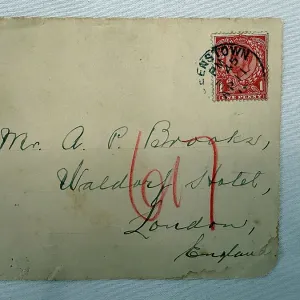 EENSTOWN
ONE PENNY
Mr. A. P. Brooks,
Waldorf Hotel,
London,
England.